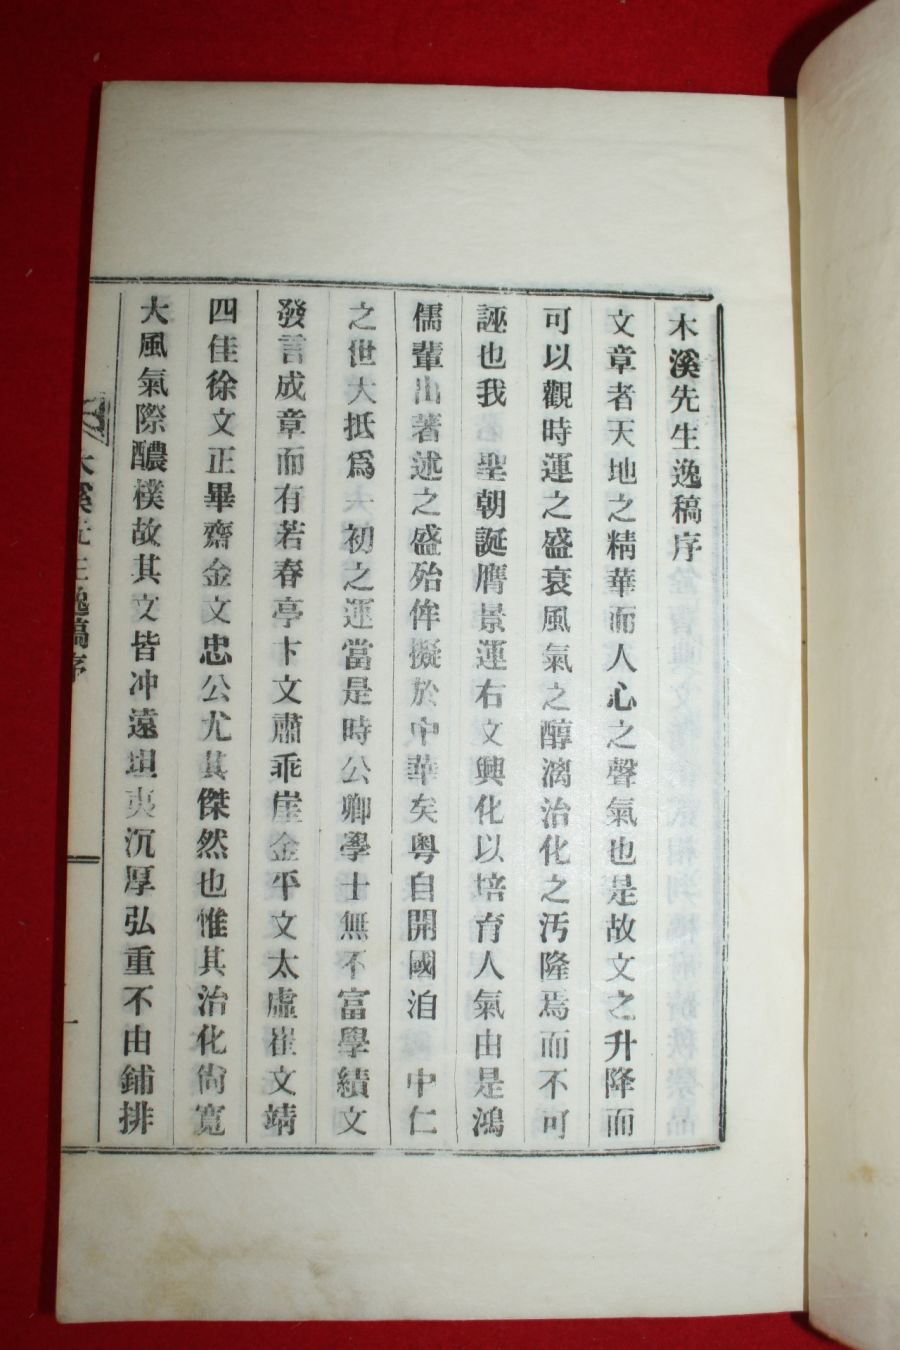 木溪先生逸稿序
文章者天地之精華而人心之聲氣也是故文之升降而
可以觀時運之盛衰風氣之醇漓治化之汚隆焉而不可
誣也我 聖朝誕膺景運右文興化以培育人氣由是鴻
儒輩出著述之盛殆侔擬於中華矣粤自開國洎 中仁
之世大抵爲 初之運當是時公卿學士無不富學績文
發言成章而有若春亭卞文肅乖崖金平文太虛崔文靖
四佳徐文正畢齋金文忠公尤其傑然也惟其治化尙寬
大風氣際醲樸故其文皆冲遠坦夷沉厚弘重不由鋪排
木溪先生逸稿序
一